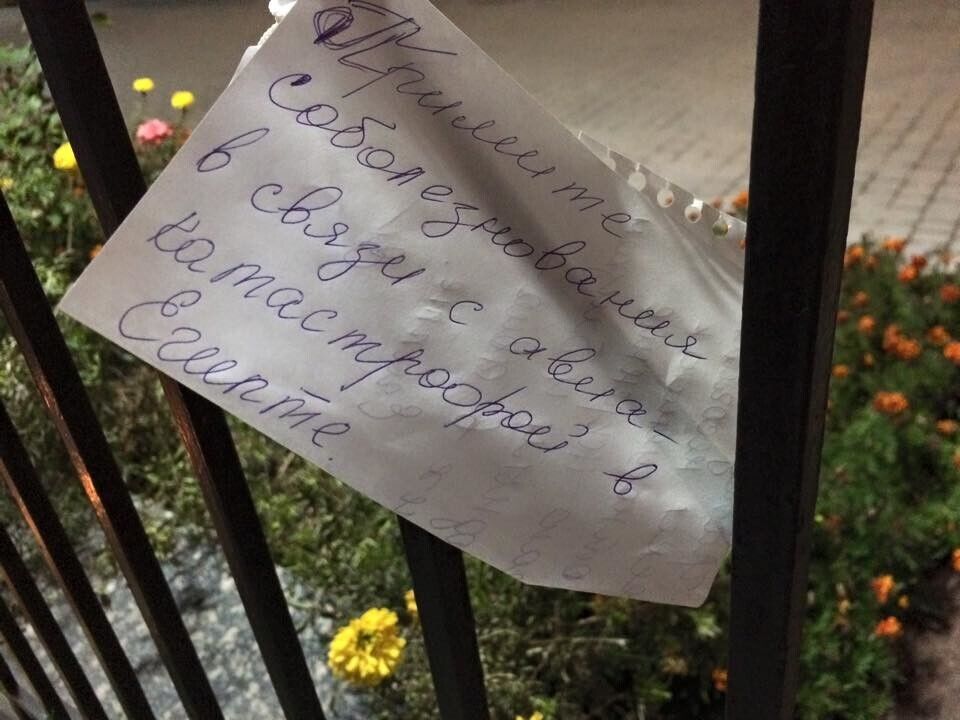 Примите
соболезнования
в связи с авиа-
катастрофой в
Египте.